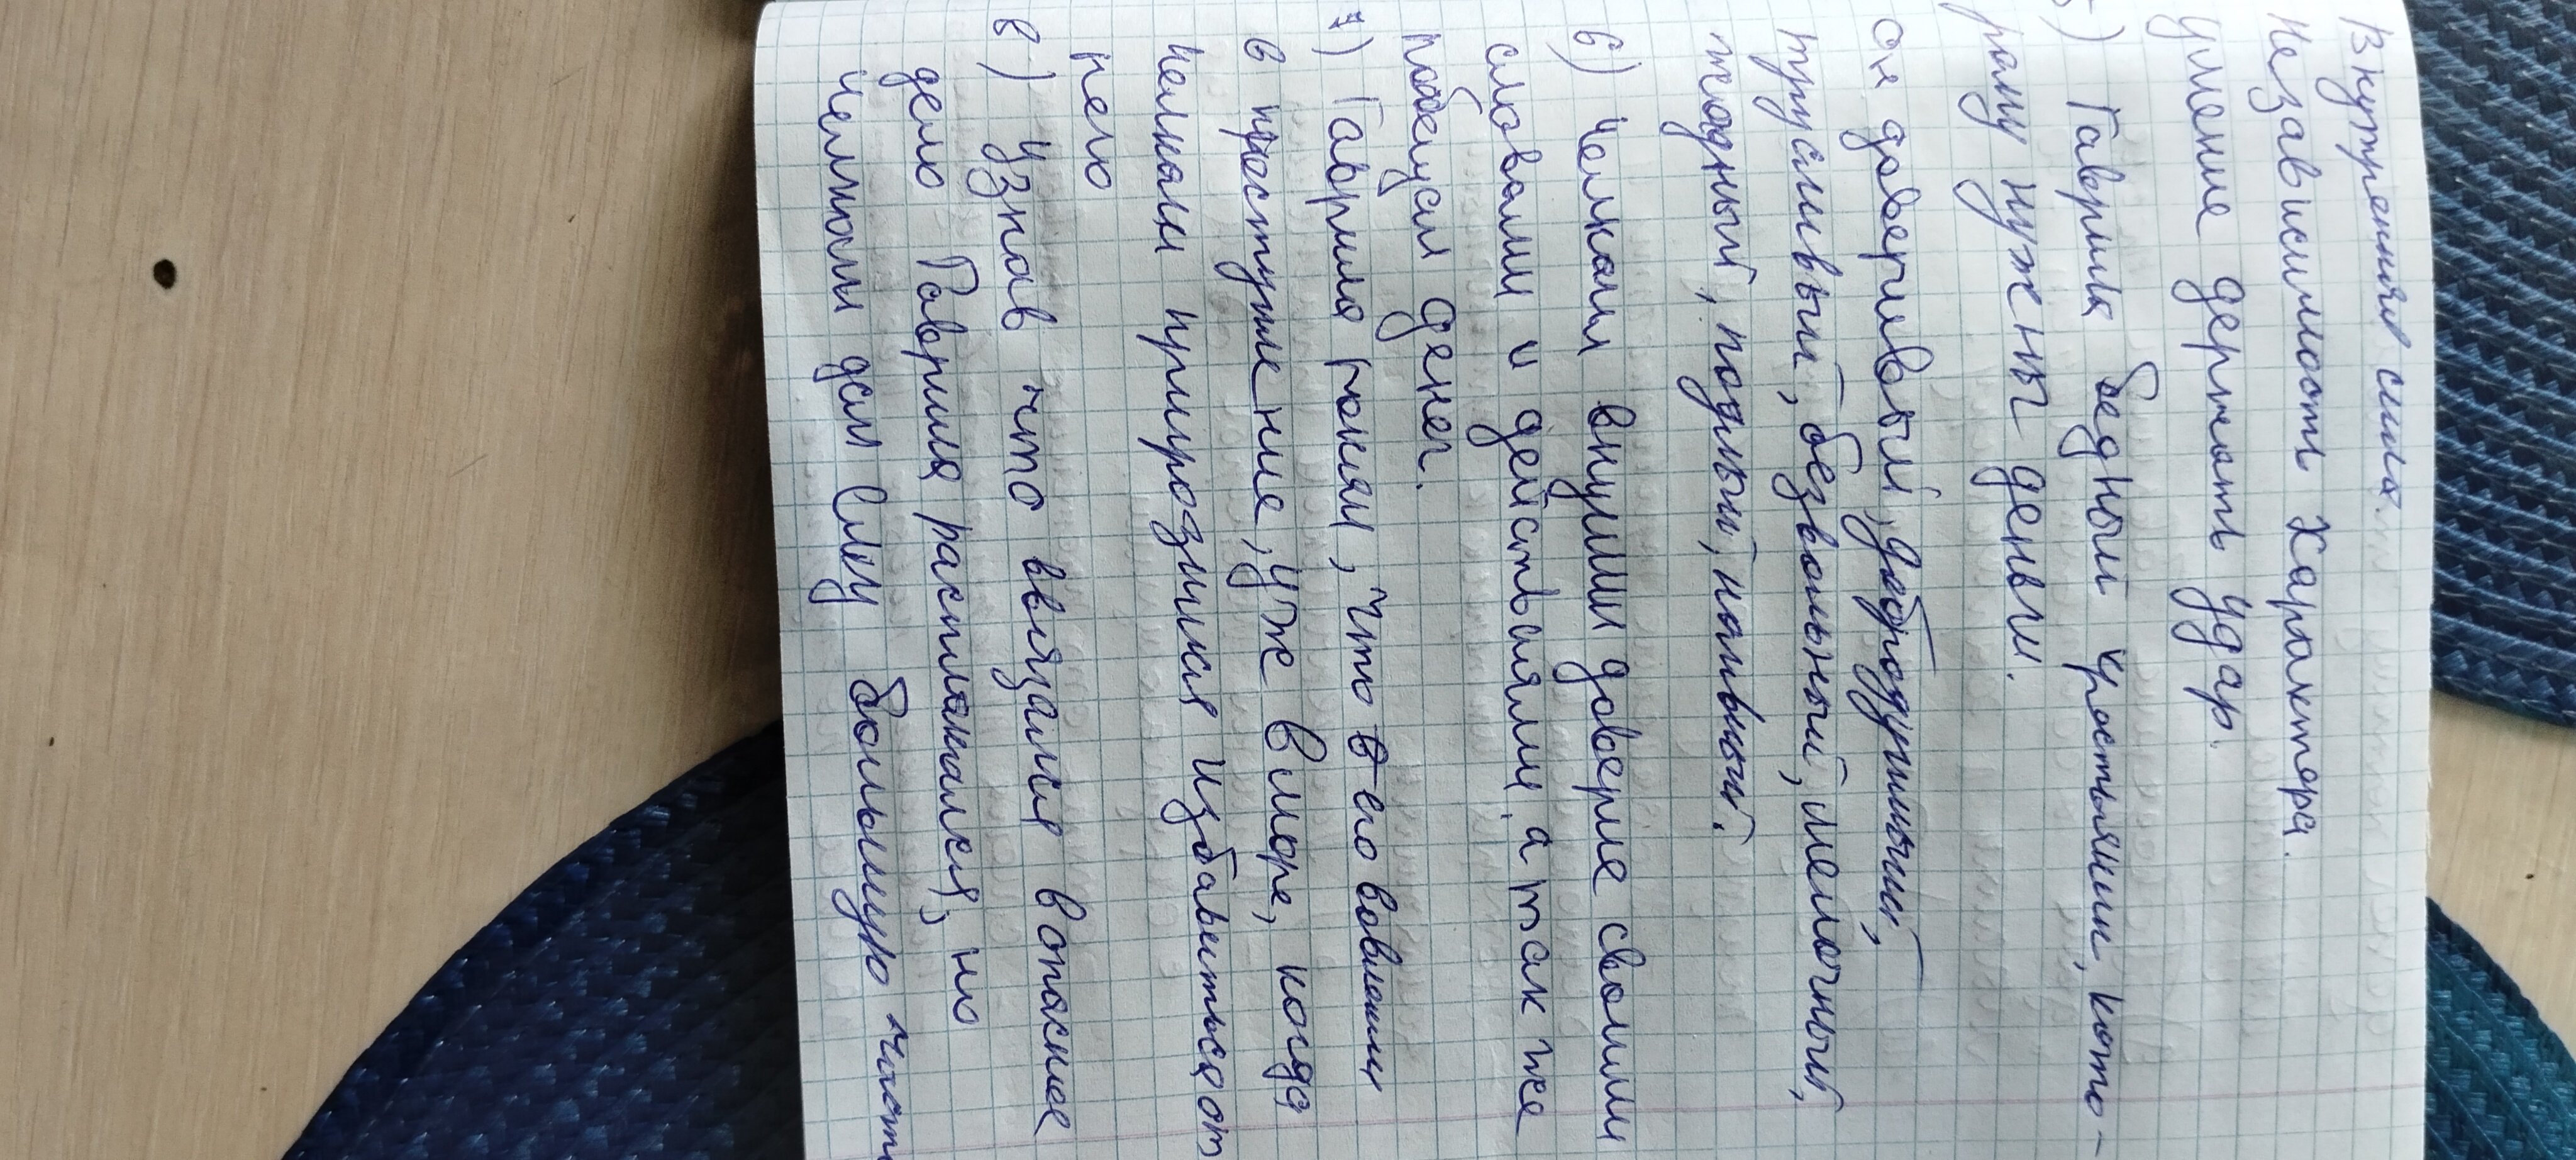 Внутренняя сила.
Независимость характера.
Умение держать удар.
5) Гаврила бедный крестьянин, кото-
рому нужны деньги.
Он доверчивый, добродушный,
трусливый, безвольный, мелочный,
жадный, подлый, наивный.
6) Челкаш внушил доверие своими
словами и действиями, а так же
пообещал денег.
7) Гаврила понял, что его вовлекли
в преступление, уже в море, когда
Челкаш пригрозился избавиться от
него
8) Узнав что ввязался в опасное
дело Гаврила расплакался, но
Челкаш дал ему большую часть